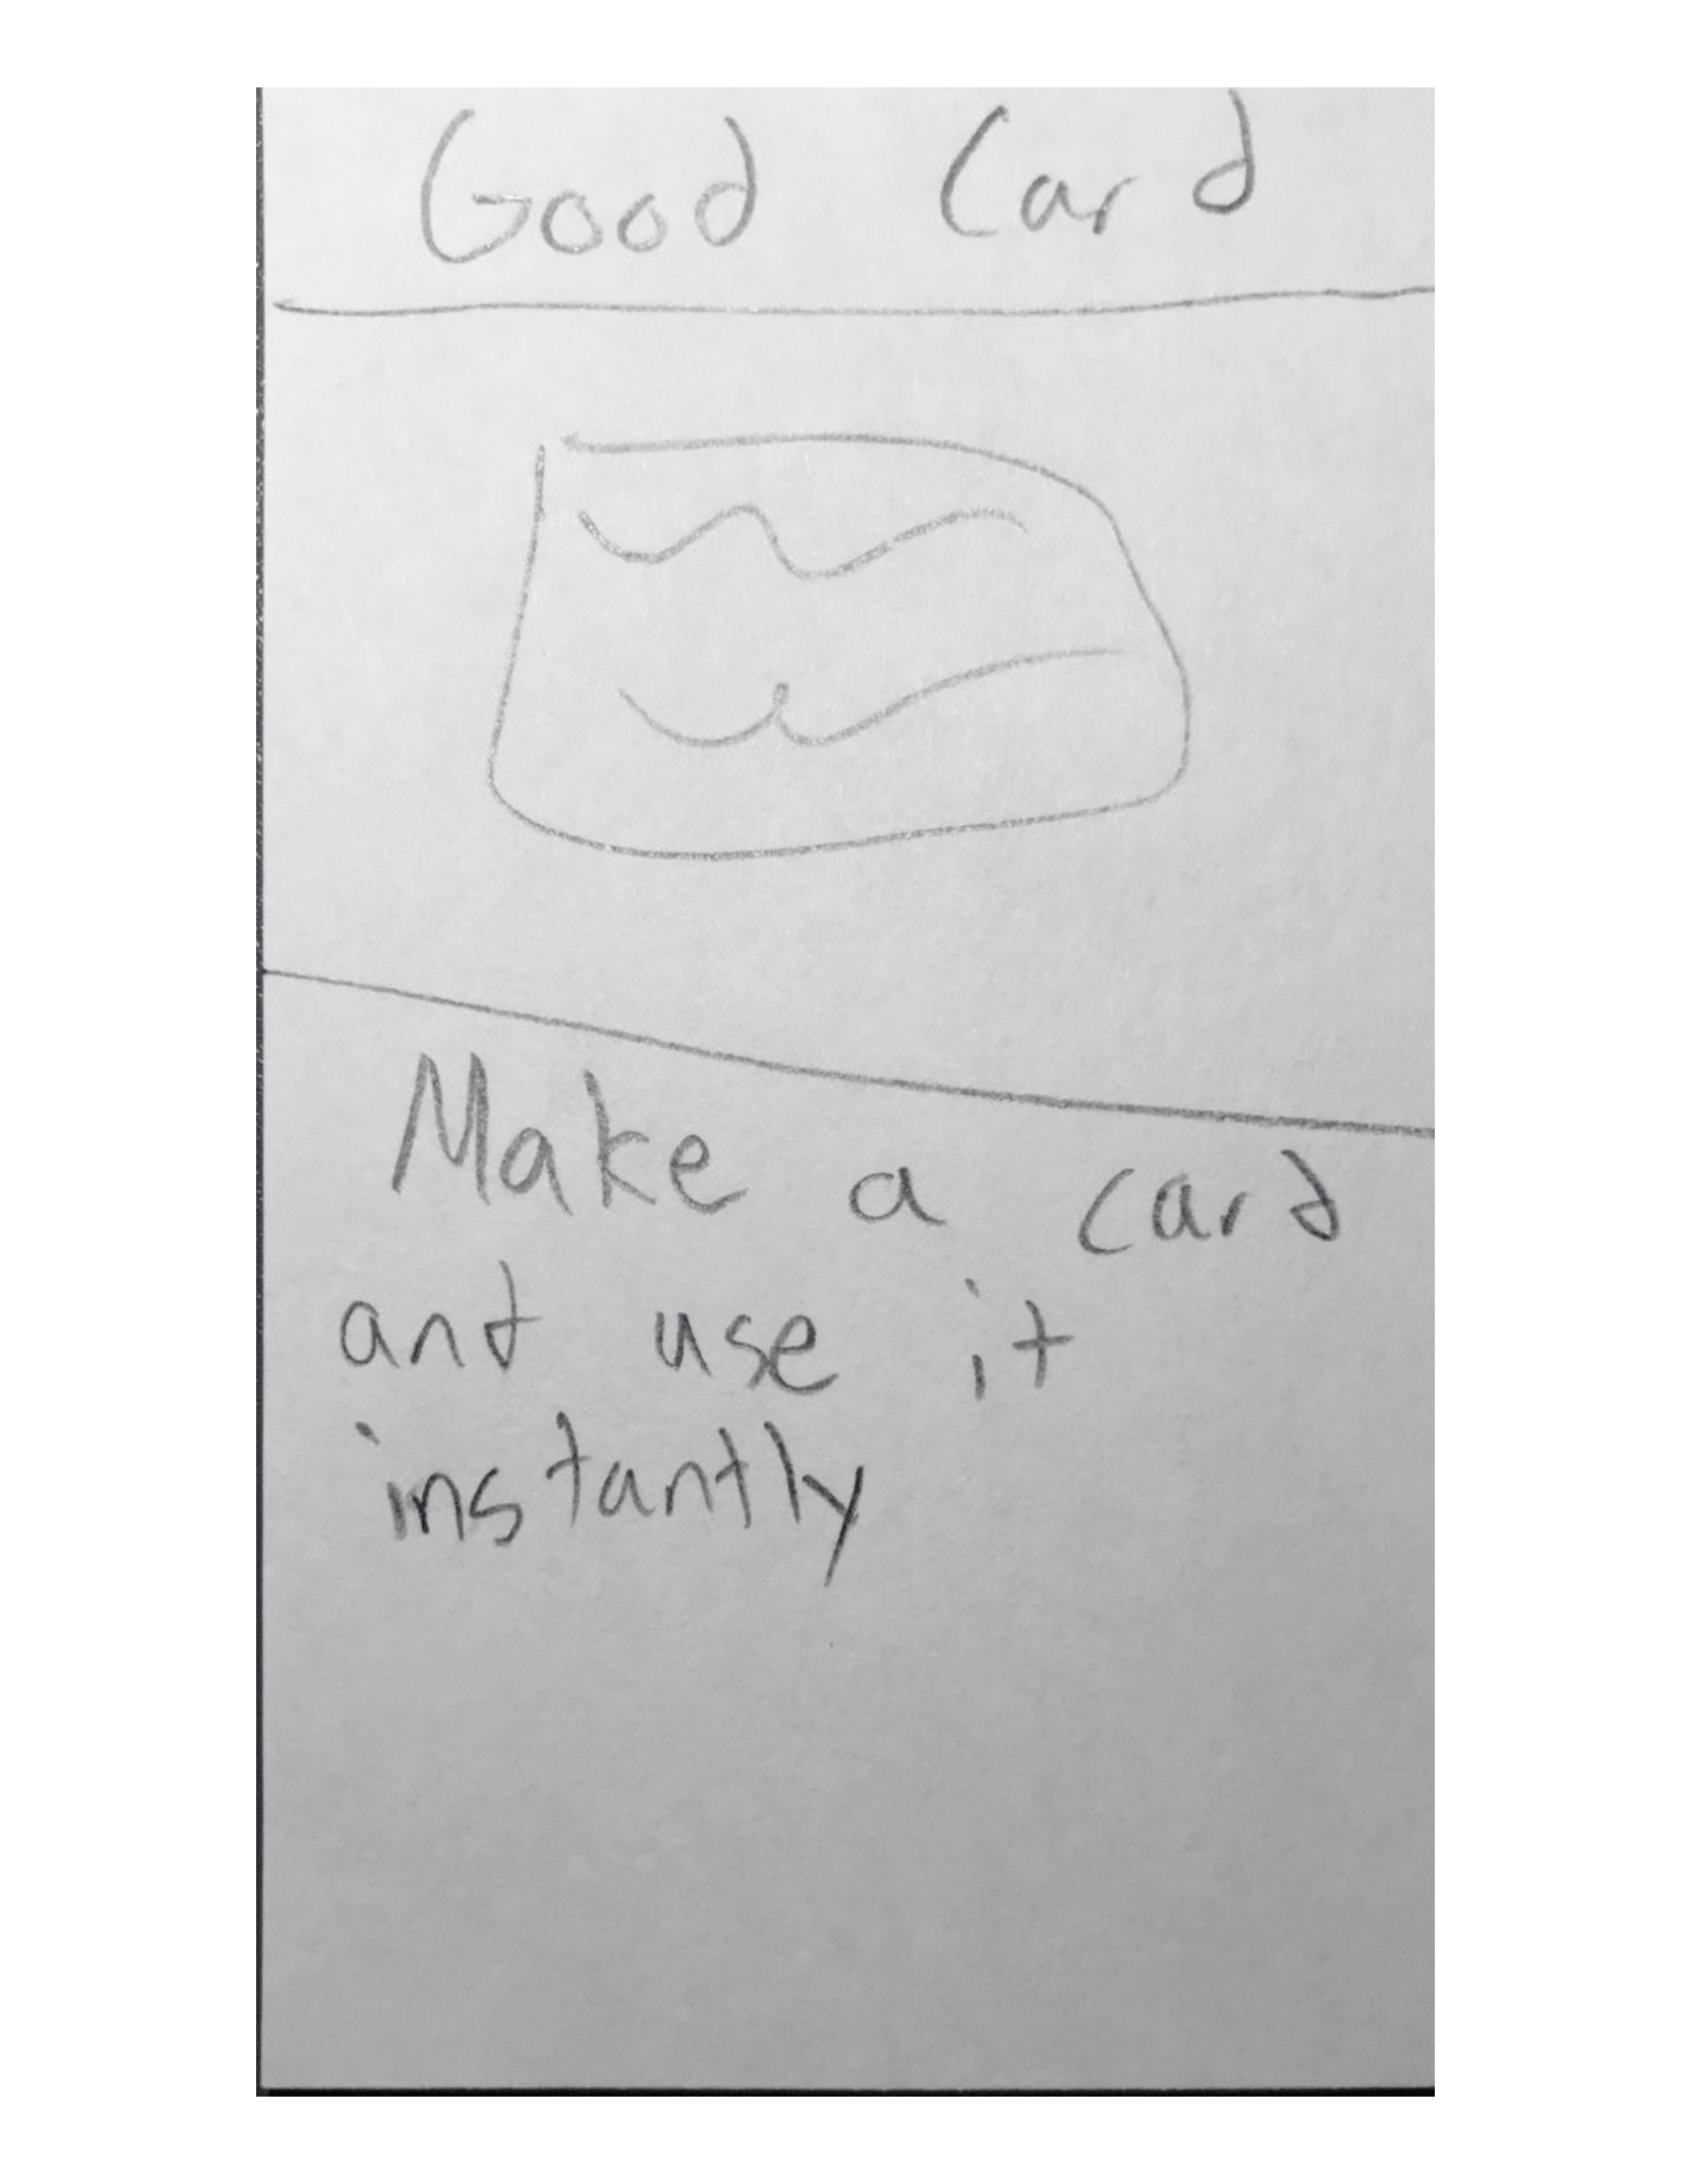 Good Card
Make a card
and use it
instantly